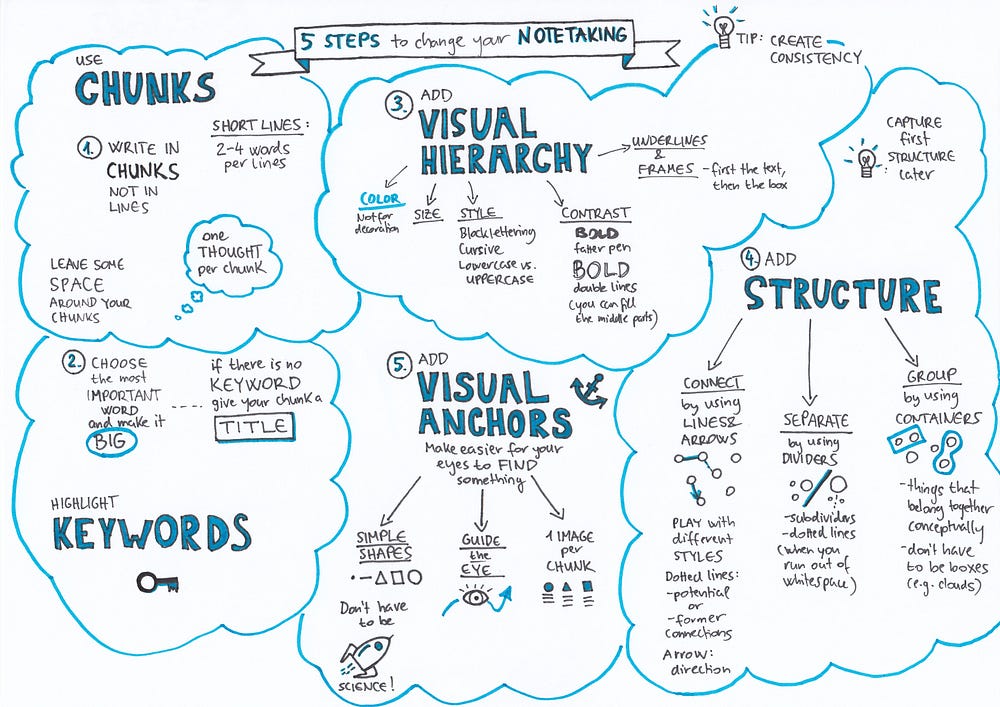 5 STEPS to change your NOTETAKING
TIP: CREATE
CONSISTENCY
USE
CHUNKS
1. WRITE IN
CHUNKS
NOT IN
LINES
SHORT LINES:
2-4 words
per lines
one
THOUGHT
per chunk
LEAVE SOME
SPACE
AROUND YOUR
CHUNKS
2. CHOOSE
the most
IMPORTANT
WORD
and make it
BIG
if there is no
KEYWORD
give your chunk a
TITLE
HIGHLIGHT
KEYWORDS
3. ADD
VISUAL
HIERARCHY
COLOR
Not for
decoration
SIZE
STYLE
Blocklettering
Cursive
Lowercase vs.
UPPERCASE
CONTRAST
BOLD
fatter pen
BOLD
double lines
(you can fill
the middle parts)
UNDERLINES
&
FRAMES - first the text,
then the box
CAPTURE
first
STRUCTURE
later
4. ADD
STRUCTURE
CONNECT
by using
LINES &
ARROWS
PLAY with
different
STYLES
Dotted lines:
-potential
or
-former
connections
Arrow:
direction
SEPARATE
by using
DIVIDERS
-subdividers
-dotted lines
(when you
run out of
whitespace)
GROUP
by using
CONTAINERS
-things that
belong together
conceptually
-don't have
to be boxes
(e.g. clouds)
5. ADD
VISUAL
ANCHORS
Make easier for your
eyes to FIND
something
SIMPLE
SHAPES
Don't have
to be
SCIENCE!
GUIDE
the
EYE
1 IMAGE
per
CHUNK